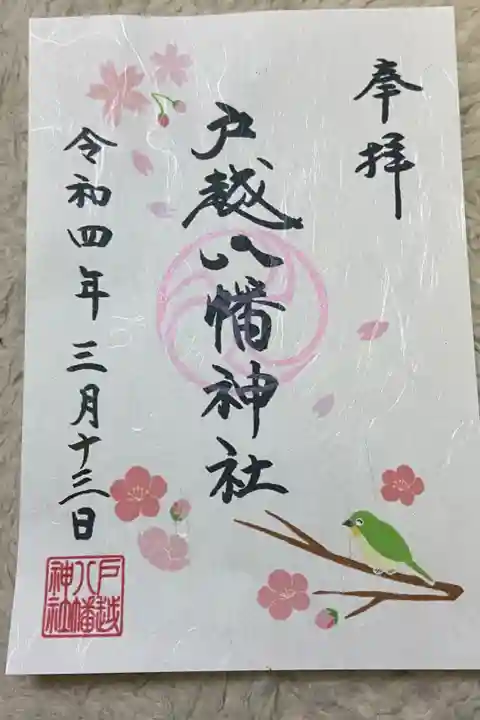 奉拝
戸越八幡神社
令和四年三月十三日
戸越
八幡
神社